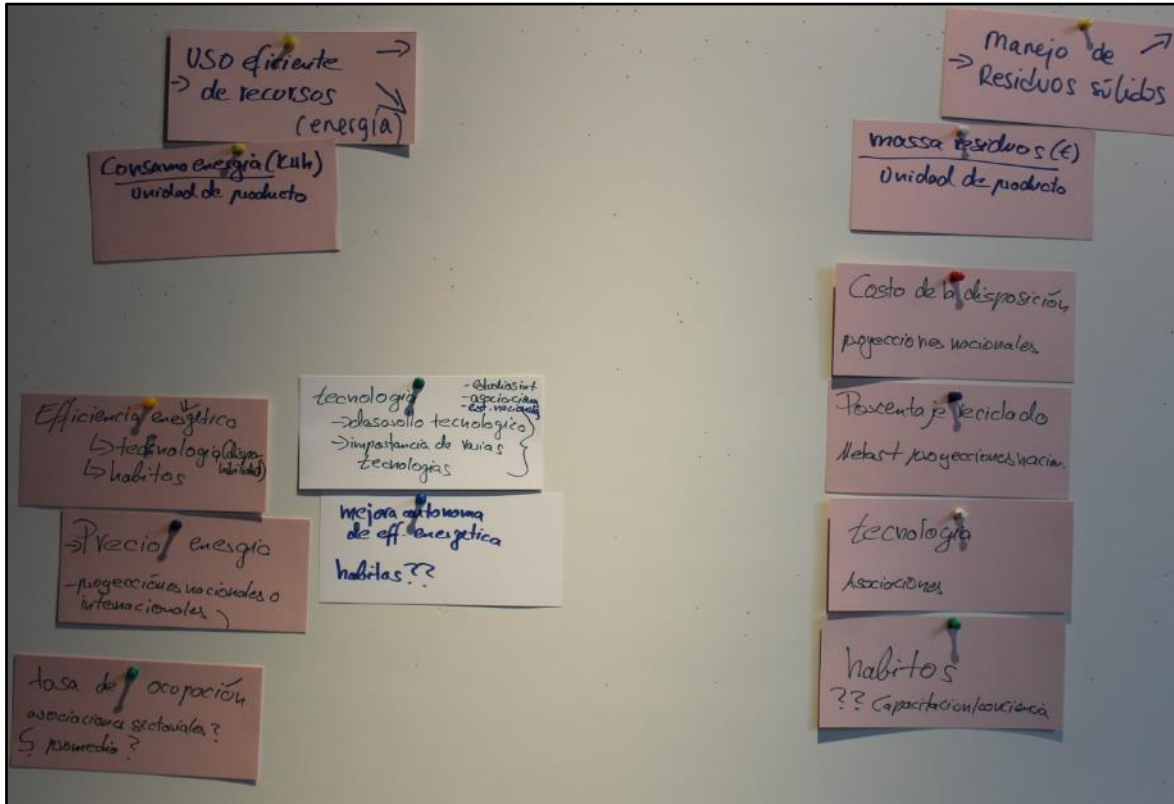 USO eficiente →
→ de recursos
(energía)
Consumo energía (KWh)
Unidad de producto
Efficiencia energética
↳ tecnología (dispon-
ibilidad)
↳ habitos
→ Precio energía
- proyecciones nacionales o
internacionales
tasa de ocopación
asociaciones sectoriales?
promedio?
tecnologia
- estudios int.
- asociaciones
- est. nacionales
→ desarollo tecnologico
→ importancia de varias
tecnologias
mejora autonoma
de eff. energetica
habitos ??
Manejo de
→ Residuos súlidos
massa residuos (t)
Unidad de producto
Costo de la disposición
proyecciones nacionales
Porcentaje reciclado
Metas + proyecciones nacion.
tecnologia
Asociaciones
habitos
?? Capacitacion/conciencia